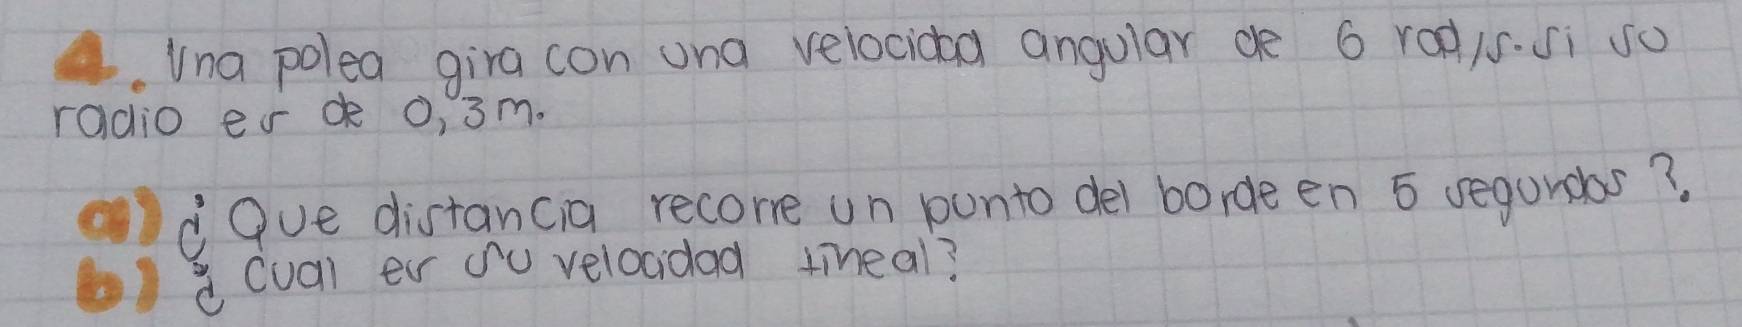 4. Una polea gira con una velocidad angular de 6 rad/s. si su
radio es de 0,3m.
a) ¿Que distancia recorre un punto del borde en 5 segundos?
b) ¿ cual es su velocidad lineal?